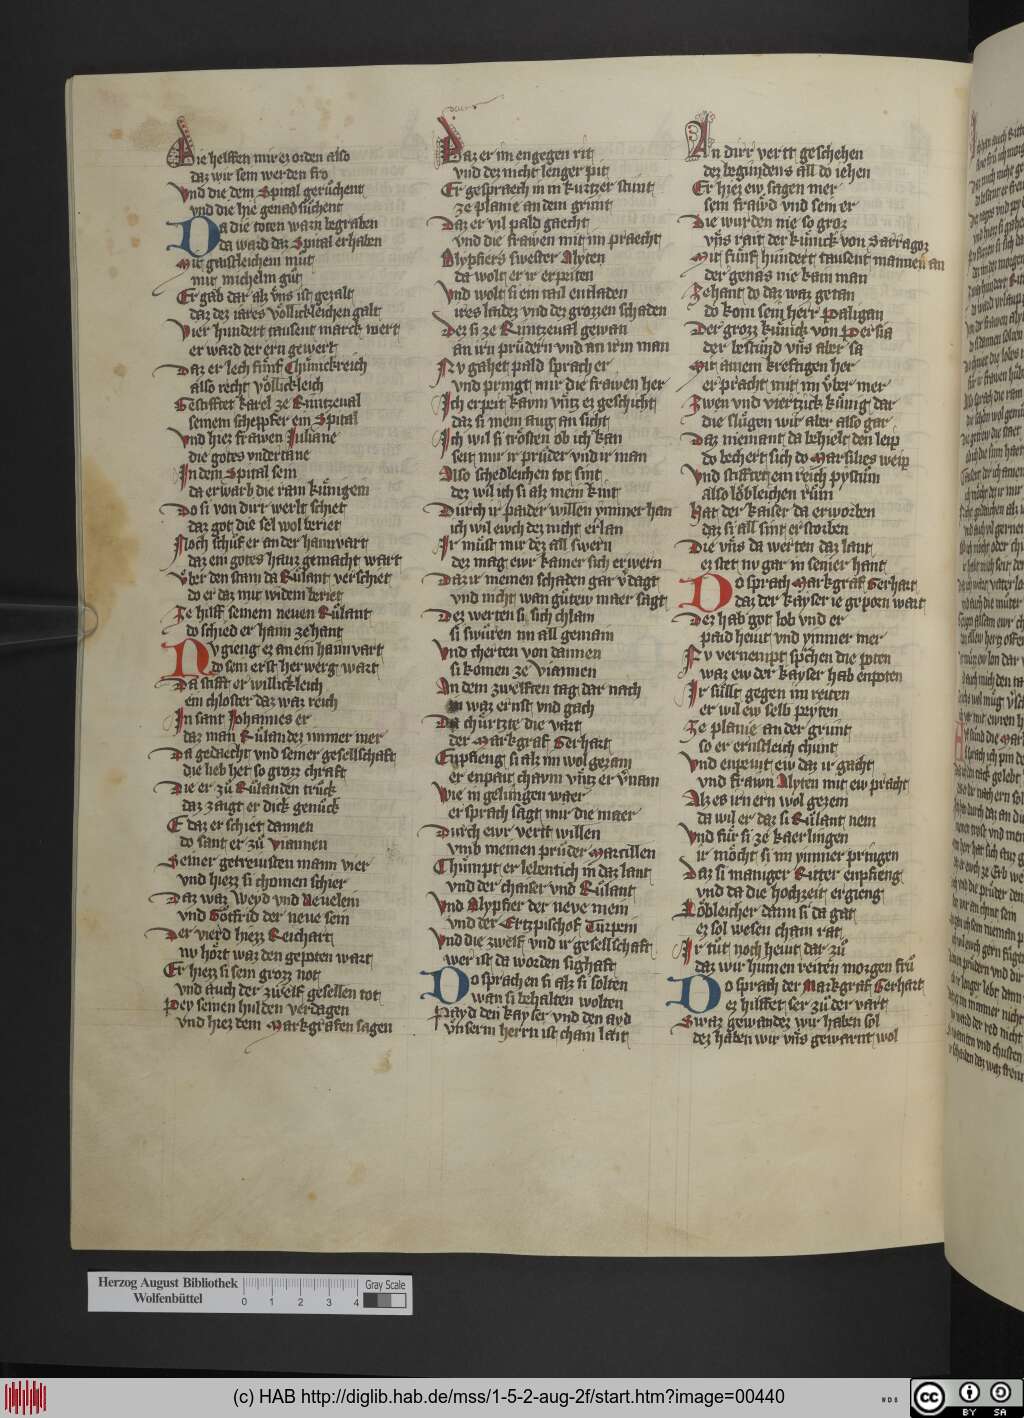 Die helffen mir ez orden also
daz wir sein werden fro
Vnd die dem Spital gerůchent
vnd die hie genad sůchent
Da die toten warn begraben
da ward daz Spital erhaben
Mit gaistleichem můt
mit michelm gůt
Er gab dar als vns ist gezalt
daz dez iares völlickleichen galt
Vier hundert tausent marck wert
er ward der ern gewert
Daz er lech fünf Chünickreich
also recht völlickleich
Gestifftet karel ze Runtzeual
seinem schepfer ein Spital
Vnd hiez frawen Juliane
die gotes vndertane
In dem Spital sein
da erwarb die rain künigein
Do si von dirr werlt schiet
daz got die sel wol beriet
Noch schůf er an der hainvart
daz ein gotes hauz gemacht wart
Vber den stain da Růlant verschiet
do er daz mit widem beriet
Ze hilff seinem neuen Růlant
do schied er hann zehant
Nv gieng ez an ein hainvart
do sein erst herwerg wart
Da stifft er willickleich
ein chloster daz waz reich
In sant Johannes er
daz man Růlandez immer mer
Da gedaecht vnd seiner gesellschaft
die lieb het so grozz chraft
Die er zů Růlanden trůck
daz zaigt er dick genůck
E daz er schiet dannen
do sant er zů viannen
Seiner getrewisten mann vier
vnd hiezz si chomen schier
Daz waz Weyd vnd Neuelein
vnd Gotfrid der neue sein
Der vierd hiezz Reichart
nv hört war den gepoten wart
Er hiezz si sein grozz not
vnd auch der zwelf gesellen tot
Pey seinen hulden verdagen
vnd hiez dem Markgrafen sagen
Daz er im engegen rit
vnd dez nicht lenger pit
Er gespraech in in kurtzer stunt
ze planie an dem grunt
Daz er vil pald gaecht
vnd die frawen mit im praecht
Alypfiers swester Alyten
da wolt er ir erpeiten
Vnd wolt si ein tail entladen
ires laidez vnd dez grozzen schaden
Dez si ze Runtzeual gewan
an irn prüdern vnd an irm man
Nv gahet pald sprach er
vnd pringt mir die frawen her
Ich erpeit kaym vntz ez geschicht
daz si mein aug an sicht
Ich wil si trösten ob ich kan
seit mir ir prüder vnd ir man
Also schedleichen tot sint
dez wil ich si alz mein kint
Durch ir paider willen ymmer han
ich wil ewch dez nicht erlan
Ir müst mir dez all swern
dez mag ewr kainer sich erwern
Daz ir meinen schaden gar vdagt
vnd nicht wan gütew maer sagt
Dez werten si sich chlain
si swüren im all gemain
Vnd cherten von dannen
si komen ze Viannen
An dem zwelften tag dar nach
in waz ernst vnd gach
Da chürtzte die vart
der Markgraf Gerhart
Enpfieng si alz im wol gezam
er enpait chaym vntz er vnam
Wie in gelungen waer
er sprach sagt mir die maer
Durch ewr vertt willen
vmb meinen prüder Marcillen
Chümpt er lelentich in daz lant
vnd der chaiser vnd Růlant
Vnd Alypfier der neve mein
vnd der Ertzpischof Turpein
Vnd die zwelf vnd ir gesellschaft
wer ist da worden sighaft
Do sprachen si alz si solten
wan si behalten wolten
Payd den kayser vnd den ayd
vnserm herrn ist chain lait
An dirr vertt geschehen
dez begündens all do iehen
Er hiez ew sagen mer
sein frawd vnd sein er
Die wurden nie so groz
vns rait der künick von Sarragoz
Mit fünf hundert tausent mannen an
der genas nie kain man
Zehant do daz waz getan
do kom sein herr Paligan
Der grozz künick von Persia
der bestünd vns aber sa
Mit ainem kreftigen her
er pracht mit im vber mer
Zwen vnd viertzick künig dar
die slügen wir aber also gar
Daz niemant da behielt den leip
do bechert sich do Marsilies weip
Vnd stifftet ein reich pystum
also löbleichen rüm
Hat der kaiser da erworben
daz si all sint erstorben
Die vns da werten daz lant
ez stet nv gar in seiner hant
Do sprach Markgraf Gerhart
daz der kayser ie geporn wart
Dez hab got lob vnd er
paid heut vnd ymmer mer
Fv vernempt sprchen die poten
waz ew der kayser hab enpoten
Ir süllt gegen im reiten
er wil ew selb peyten
Ze planie an der grunt
so er ernstleich chunt
Vnd enpeut ew daz ir gacht
vnd frawn Alyten mit ew pracht
Alz es irn ern wol gezem
da wil er daz si Rülant nem
Vnd für si ze kaerlingen
ir möcht si im ymmer pringen
Daz si maniger Ritter enpfieng
vnd da die hochzeit ergieng
Löbleicher dann si da gat
ez sol wesen chain rat
Ir tüt noch heut dar zů
daz wir hinnen reiten morgen frů
Do sprach der Markgraf Gerhart
ez hilffet ser zů der vart
Swaz gewandez wir haben sol
dez haben wir vns gewarnt wol
Herzog August Bibliothek
Wolfenbüttel
0 1 2 3 4
Gray Scale
(c) HAB http://diglib.hab.de/mss/1-5-2-aug-2f/start.htm?image=00440
WDB
cc BY SA